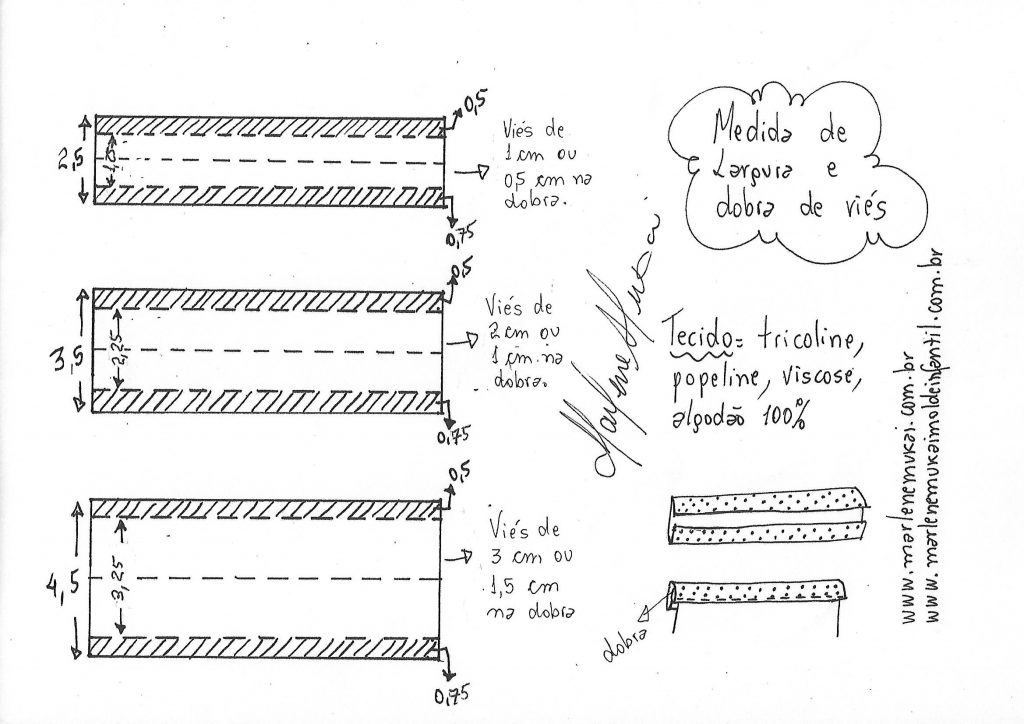 Medida de
Largura e
dobra de viés
0,5
2,5
1,25
0,75
Viés de
1 cm ou
0,5 cm na
dobra.
0,5
3,5
2,25
0,75
Viés de
2 cm ou
1 cm na
dobra.
0,5
4,5
3,25
0,75
Viés de
3 cm ou
1,5 cm
na dobra
Marlene Mukai
Tecido: tricoline,
popeline, viscose,
algodão 100%
dobra
www.marlenemukai.com.br
www.marlenemukaimoldeinfantil.com.br